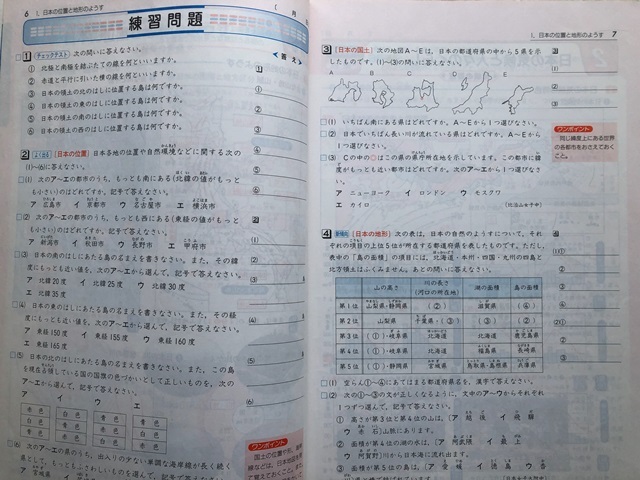 6 1. 日本の位置と地形のようす
( 月
練習問題
1 チェックテスト 次の問いに答えなさい。
① 北極と南極を結ぶたての線を何といいますか。
② 赤道と平行に引いた横の線を何といいますか。
③ 日本の領土の北のはしに位置する島は何ですか。
④ 日本の領土の東のはしに位置する島は何ですか。
⑤ 日本の領土の南のはしに位置する島は何ですか。
⑥ 日本の領土の西のはしに位置する島は何ですか。
答え
1
①
②
③
④
⑤
⑥
2 よく出る [日本の位置] 日本各地の位置や自然環境などに関する次の
(1)〜(6)に答えなさい。
(1) 次のア〜エの都市のうち、もっとも南にある(北緯の値がもっと
も小さい)のはどれですか。記号で答えなさい。
ア 広島市 イ 京都市 ウ 名古屋市 エ 横浜市
(2) 次のア〜エの都市のうち、もっとも西にある(東経の値がもっと
も小さい)のはどれですか。記号で答えなさい。
ア 新潟市 イ 秋田市 ウ 長野市 エ 甲府市
(3) 日本の南のはしにあたる島の名まえを書きなさい。また、その緯
度にもっとも近い値を、次のア〜エから選んで、記号で答えなさい。
ア 北緯20度 イ 北緯25度 ウ 北緯30度
エ 北緯35度
(4) 日本の東のはしにあたる島の名まえを書きなさい。また、その経
度にもっとも近い値を、次のア〜エから選んで、記号で答えなさい。
ア 東経150度 イ 東経155度 ウ 東経160度
エ 東経165度
(5) 日本の北のはしにあたる島の名まえを書きなさい。また、この島
を現在占領している国の国旗の色づかいとして正しいものを、次の
ア〜エから選んで、記号で答えなさい。
ア イ ウ エ
(6) 次のア〜エの県のうち、出入りの少ない単調な海岸線が長く続く
県として、もっともふさわしいものを選んで、記号で答えなさい。
ア 宮城県 イ 茨城県 ウ 静岡県
2
(1)
(2)
(3)
(4)
(5)
(6)
ワンポイント
1. 日本の位置と地形のようす 7
3 [日本の国土] 次の地図A〜Eは、日本の都道府県の中から5県を示
したものです。(1)〜(3)の問いに答えなさい。
A B C D E
(1) いちばん南にある県はどれですか。A〜Eから1つ選びなさい。
(2) 日本でいちばん長い川が流れている県はどれですか。A〜Eから
1つ選びなさい。
(3) Cの中の○はこの県の県庁所在地を示しています。この都市に緯度
がもっとも近い都市はどれですか。次のア〜エから1つ選びなさい。
ア ニューヨーク イ ロンドン ウ モスクワ
エ カイロ
3
(1)
(2)
(3)
ワンポイント
同じ緯度上にある世界
の各都市をおさえておく
こと。
4 [日本の地形] 次の表は、日本の自然のようすについて、それ
ぞれの項目の上位5位が所在する都道府県を表したものです。ただし、
表中の「島の面積」の項目には、北海道・本州・四国・九州の四島と
北方領土はふくみません。あとの問いに答えなさい。
山の高さ 川の長さ(河口の所在地) 湖の面積 島の面積
第1位 山梨県・静岡県 (②) 滋賀県 (④)
第2位 山梨県 千葉県・(③) (③) (②)
第3位 (①)・岐阜県 北海道 北海道 鹿児島県
第4位 (①)・岐阜県 北海道 福島県 長崎県
第5位 (①)・静岡県 宮城県 鳥取県・島根県 兵庫県
(1) 空らん①〜④にあてはまる都道府県名を、漢字で答えなさい。
(2) 次の①〜③の文が正しくなるように、文中のア〜ウからそれぞれ
1つずつ選んで、記号で答えなさい。
① 高さが第3位と第4位の山は、〔ア 越後 イ 飛驒
ウ 赤石〕山脈にあります。
② 面積が第4位の湖の水は、〔ア 阿武隈 イ 最上
ウ 阿賀野〕川から日本海に流れ出ます。
③ 面積が第5位の島は、〔ア 愛媛 イ 徳島 ウ 香
4
(1)①
②
③
④
(2)①
②
③